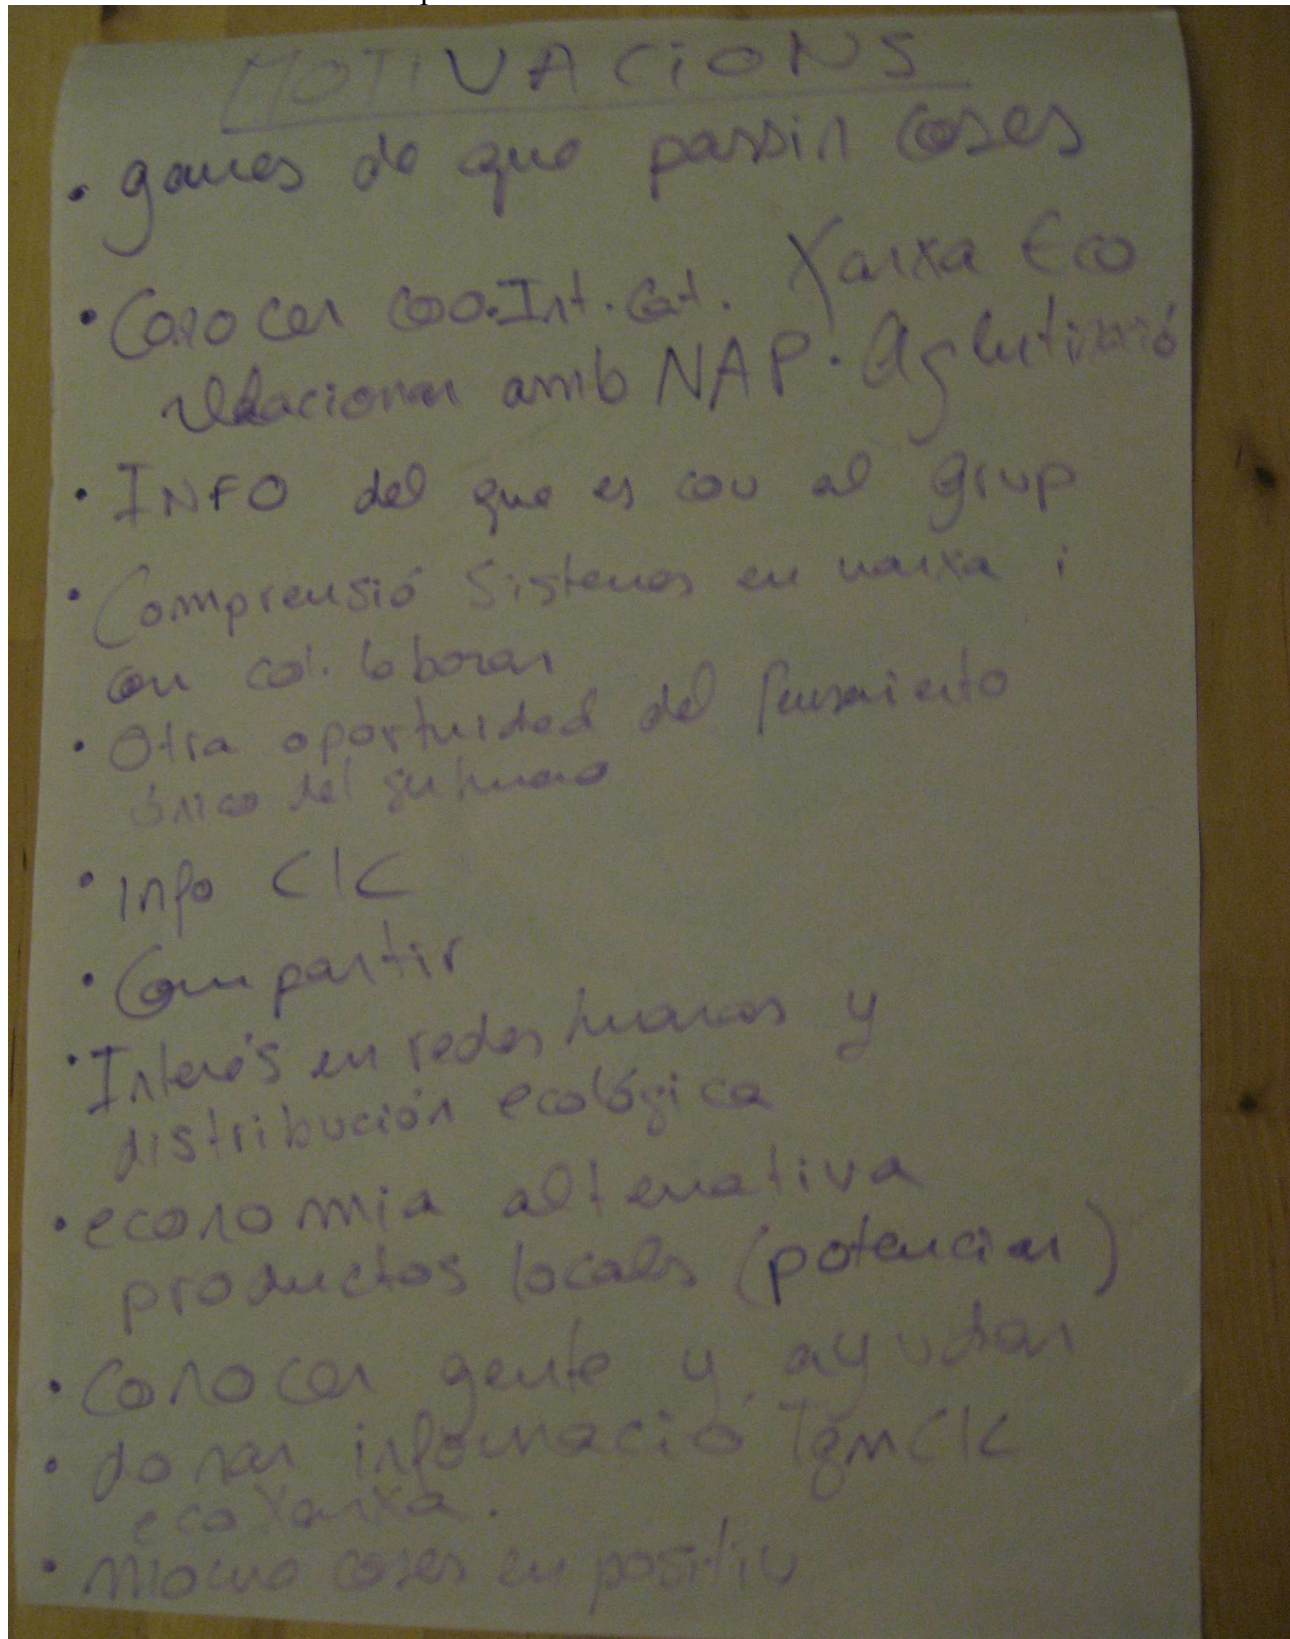 MOTIVACIONS
• ganes de que passin coses
• Conocer Coo.Int.Cat. Xarxa Eco
relacionar amb NAP. Aglutinació
• INFO del que es cou al grup
• Comprensió Sistemes en xarxa i
on col.laborar
• Otra oportunidad del Pensamiento
único del ser humano
• Info CIC
• Compartir
• Interés en redes humanas y
distribución ecológica
• economia alternativa
productos locals (potenciar)
• Conocer gente y ayudar
• donar informació TgnCIC
ecoXarxa.
• moure coses en positiu